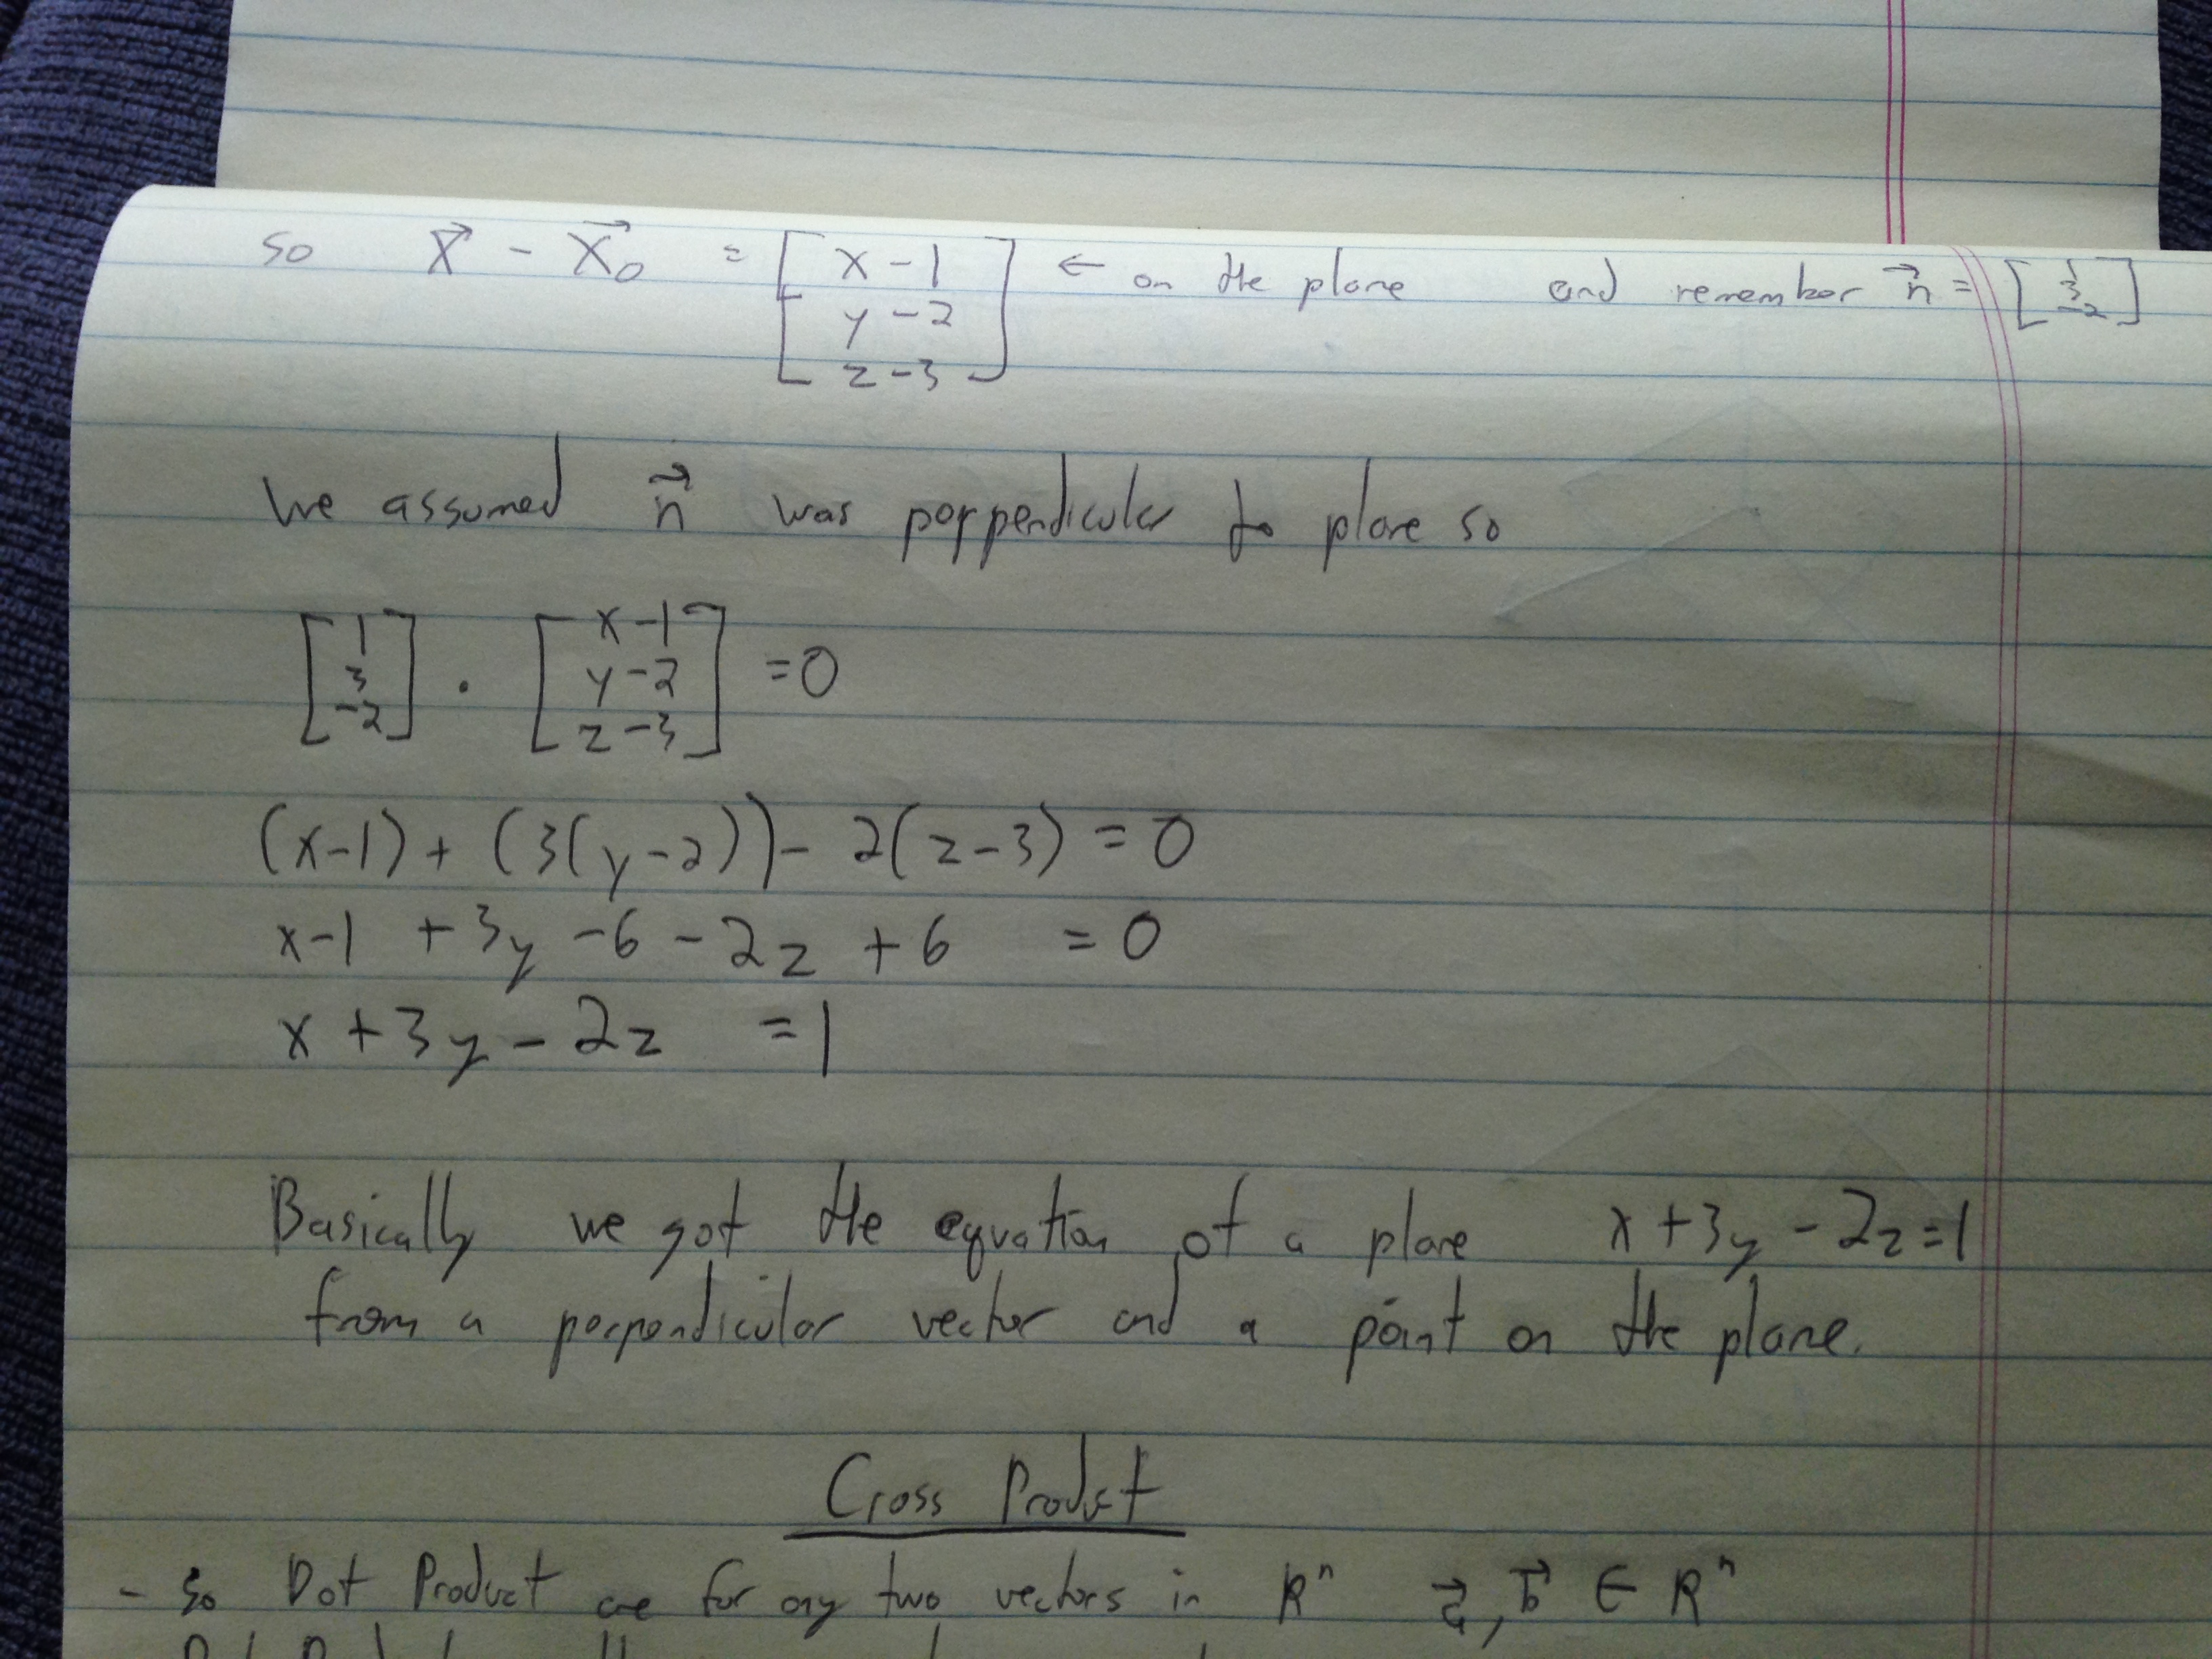 so x⃗ - x⃗₀ = [x-1 y-2 z-3] ← on the plane and remember n⃗ = [1 3 -2]
We assumed n⃗ was perpendicular to plane so
[1 3 -2] · [x-1 y-2 z-3] = 0
(x-1) + (3(y-2)) - 2(z-3) = 0
x-1 + 3y - 6 - 2z + 6 = 0
x + 3y - 2z = 1
Basically we got the equation of a plane x + 3y - 2z = 1
from a perpendicular vector and a point on the plane.
Cross Product
- So Dot Product are for any two vectors in Rⁿ a⃗, b⃗ ∈ Rⁿ